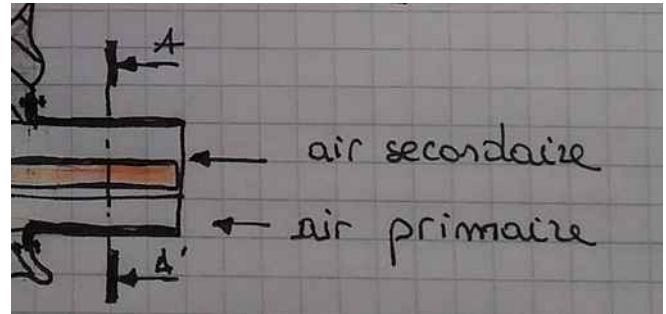 A
air secondaire
air primaire
A'